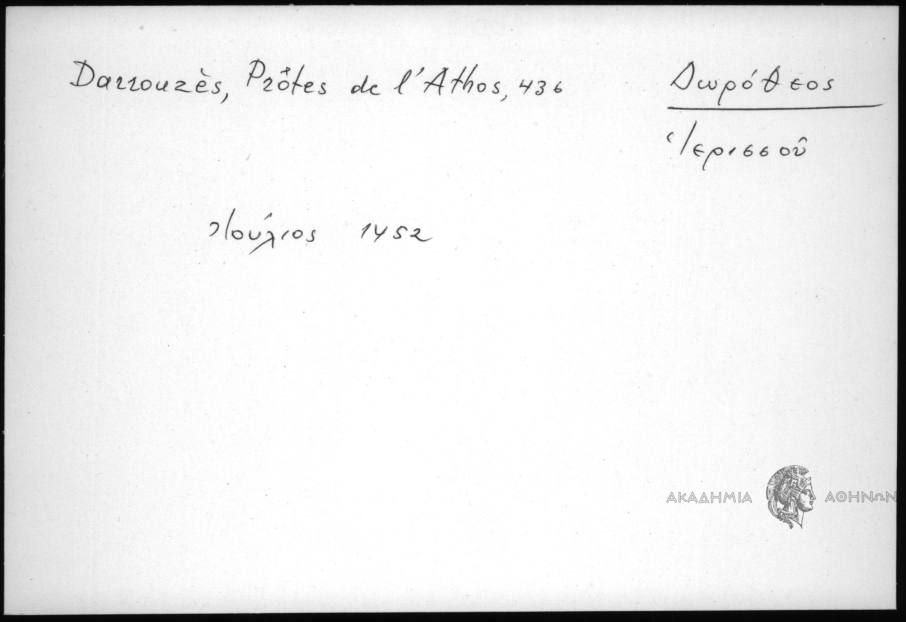 Darrouzès, Prôtes de l'Athos, 436
Δωρόθεος
Ἱερισσοῦ
Ἰούλιος 1452
ΑΚΑΔΗΜΙΑ ΑΘΗΝΩΝ